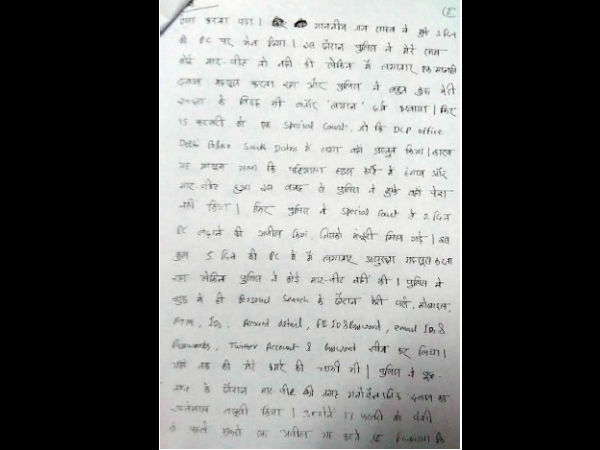 (2)
करना पड़ा। माननीय जज साहब ने मुझे 3 दिन
की PC पर भेज दिया। इस दौरान पुलिस ने मेरे साथ
कोई मार-पीट तो नहीं की लेकिन मैं लगातार एक मानसिक
दबाव महसूस करता रहा और पुलिस ने बहुत कुछ मेरी
इच्छा के विरुद्ध भी बतौर 'बयान' दर्ज करवाया। फिर
15 फरवरी को एक Special Court, जो कि DCP office
Delhi Police South District में लगा वहाँ प्रस्तुत किया। कारण
यह बताया गया कि पटियाला हाउस कोर्ट में हंगामा और
मार-पीट हुआ इस वजह से पुलिस ने मुझे वहाँ पेश
नहीं किया। फिर पुलिस ने Special Court से 2 दिन
PC बढ़ाने की अपील किया, जिसको मंजूरी मिल गई। इस
कुल 5 दिन की PC में मैं लगातार असुरक्षा महसूस करता
रहा लेकिन पुलिस ने कोई मार-पीट नहीं की। पुलिस ने
शुरू में ही Personal Search के दौरान मेरी पर्स, मोबाइल,
ATM, IDs, Account detail, FB ID & Password, email IDs &
Passwords, Twitter Account & Password सीज कर लिया।
की मेरे कमरे की चाभी भी। पुलिस ने पूछ-
ताछ के दौरान मार-पीट की जगह मनोवैज्ञानिक दबाव का
इस्तेमाल किया। उन्होंने 17 फरवरी को पेशी
से पहले मुझसे एक अपील